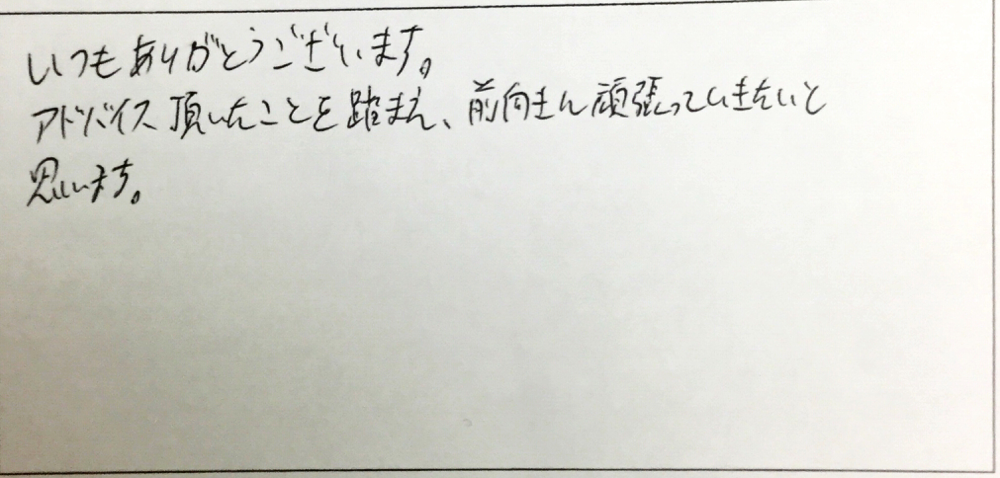 いつもありがとうございます。
アドバイス頂いたことを踏まえ、前向きに頑張っていきたいと
思います。